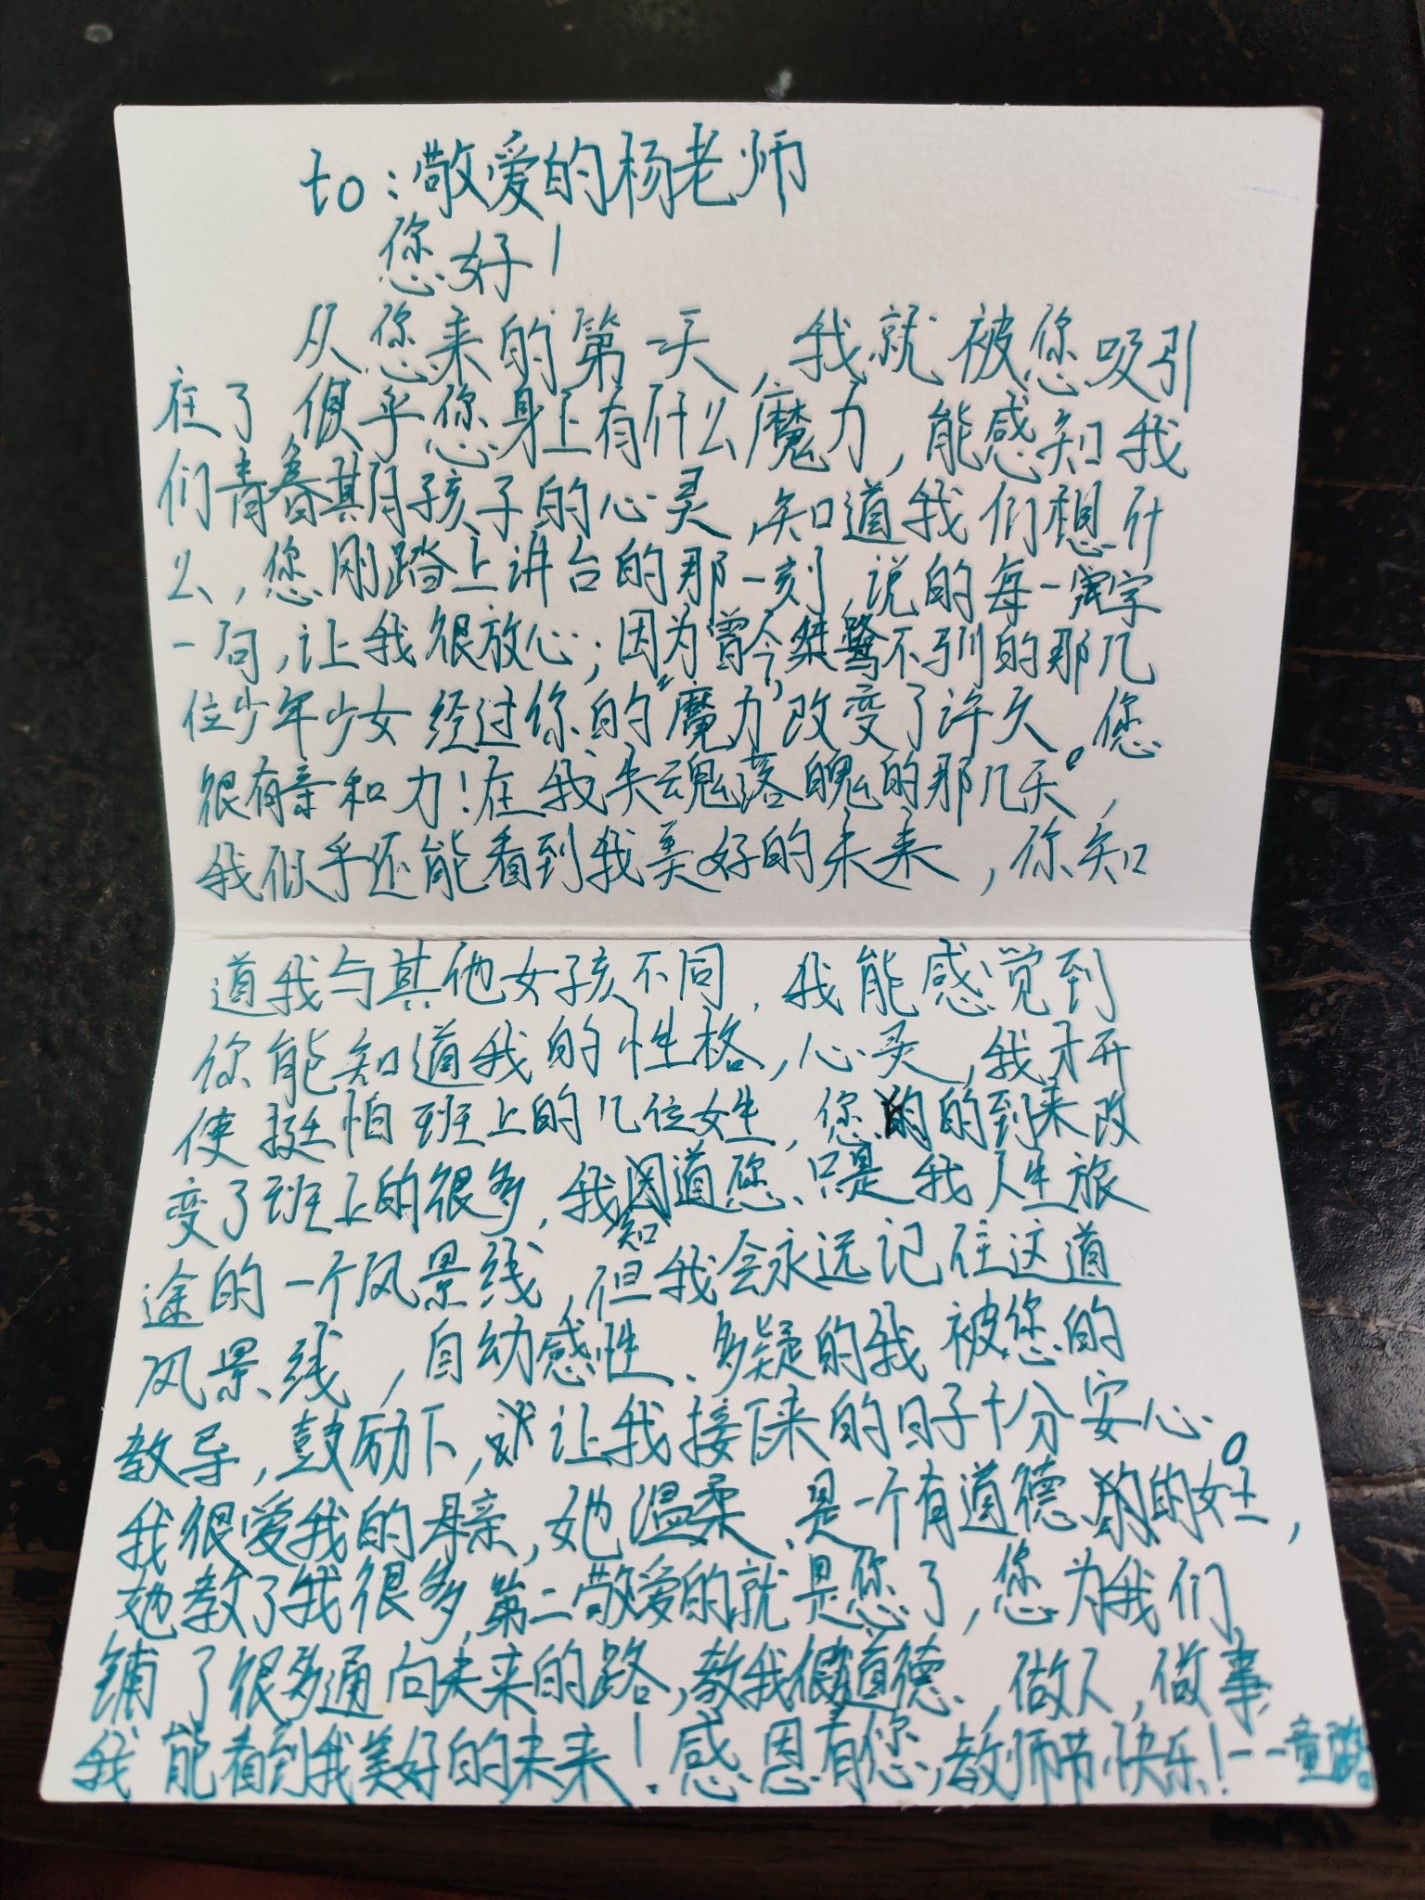 to:敬爱的杨老师
您好!
从您来的第一天,我就被您吸引
住了 似乎您身上有什么魔力,能感知我
们青春期孩子的心灵,知道我们想什
么,您刚踏上讲台的那一刻,说的每一字
一句,让我很放心;因为曾今桀骜不驯的那几
位少年少女经过你的“魔力”改变了许久。您
很有亲和力!在我失魂落魄的那几天,
我似乎还能看到我美好的未来,你知
道我与其他女孩不同,我能感觉到
你能知道我的性格,心灵,我才开
使挺怕班上的几位女生,您的到来改
变了班上的很多,我知道您、只是我人生旅
途的一个风景线,但我会永远记住这道
风景线,自幼感性、多疑的我被您的
教导,鼓励下,让我接下来的日子十分安心。
我很爱我的母亲,她温柔、是一个有道德、的女生,
她教了我很多,第二敬爱的就是您了,您为我们
铺了很多通向未来的路,教我道德,做人,做事,
我能看到我美好的未来!感恩有您,教师节快乐!--童